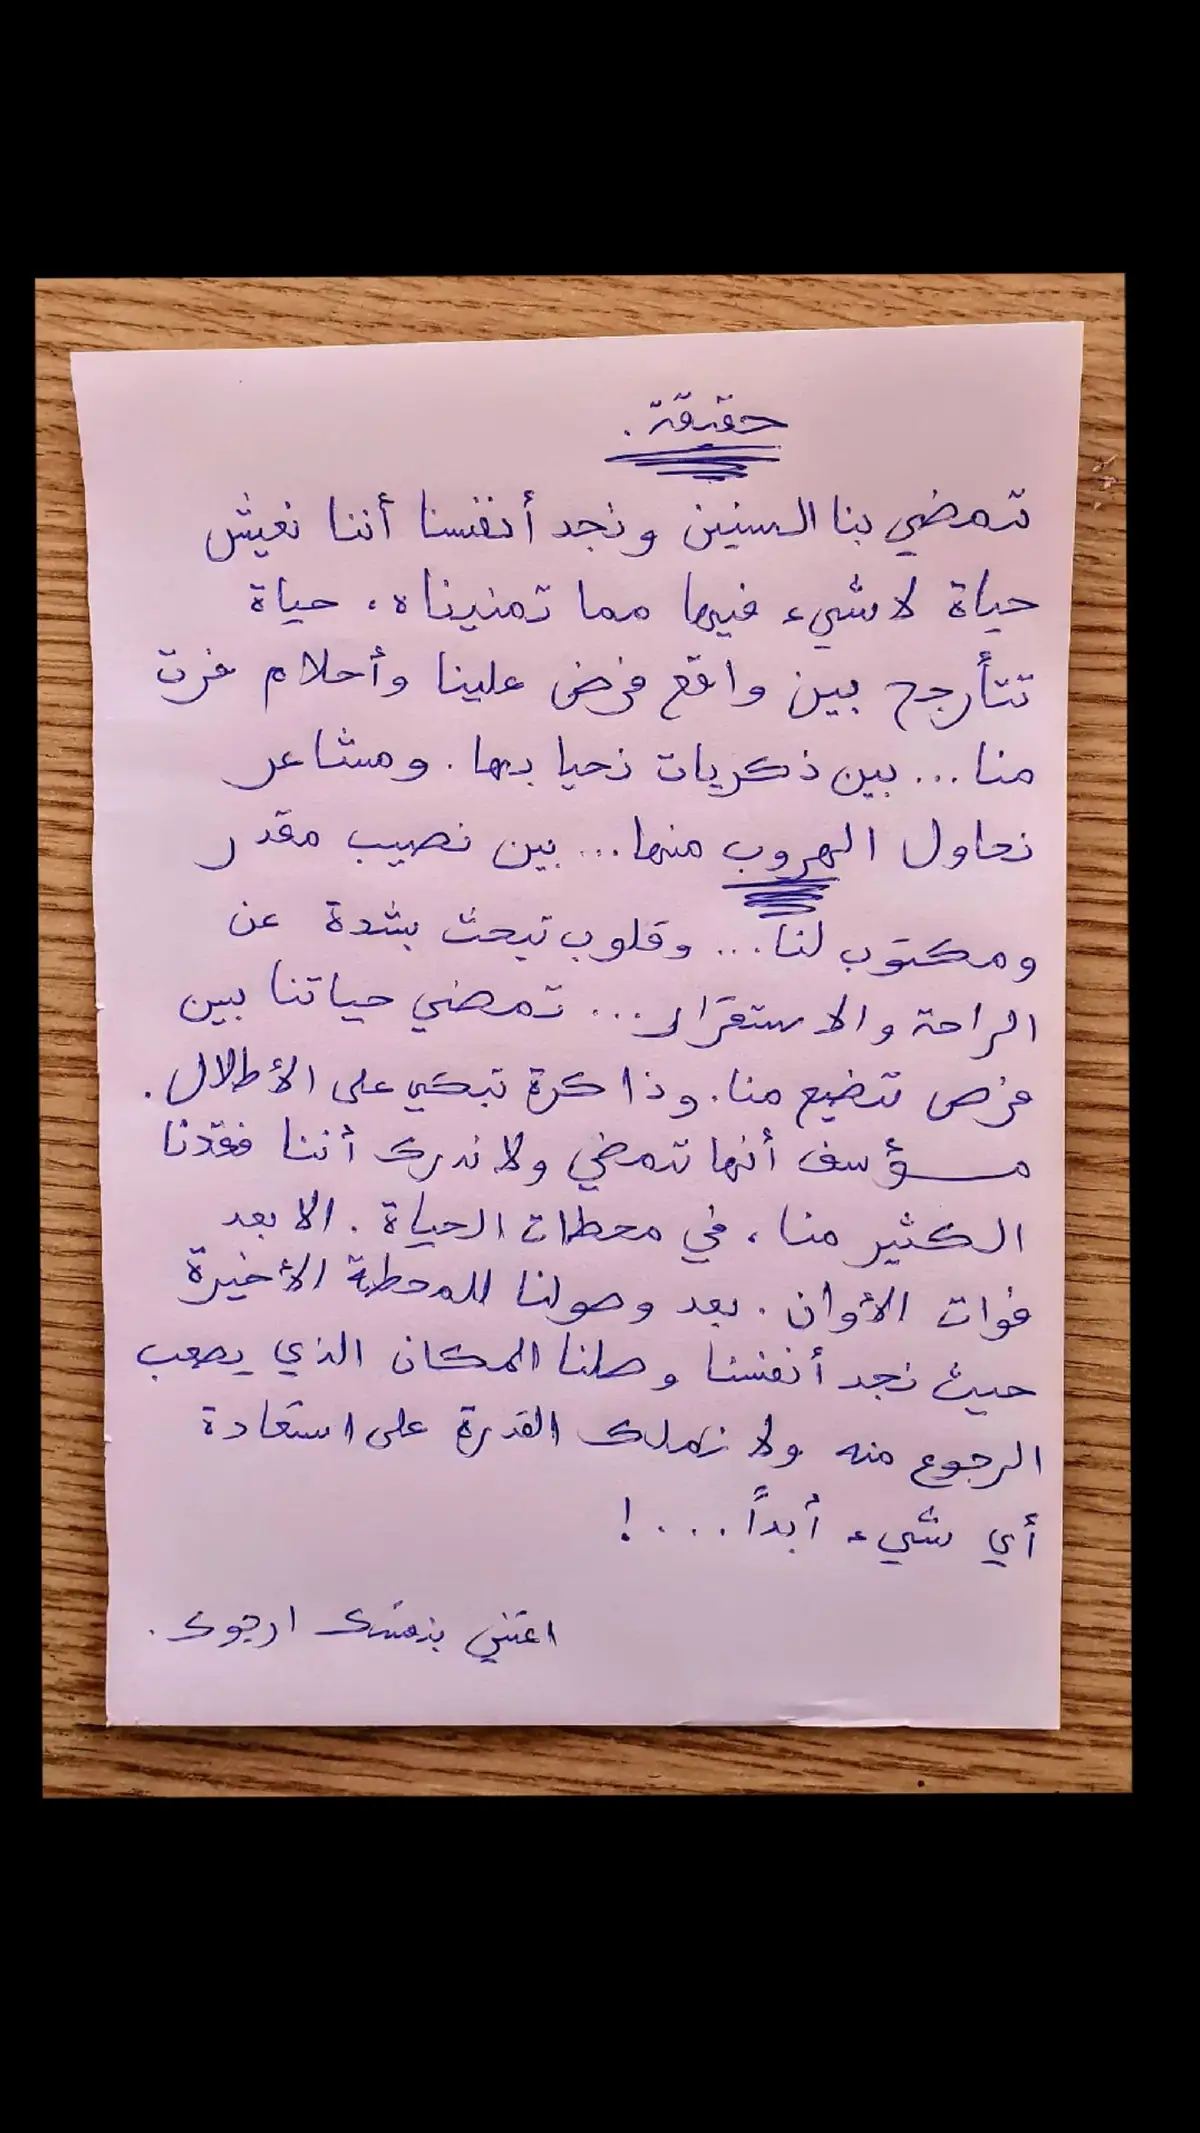 حقيقة.
تمضي بنا السنين ونجد أنفسنا أننا نعيش
حياة لا شيء فيها مما تمنيناه، حياة
تتأرجح بين واقع فرض علينا وأحلام فرت
منا... بين ذكريات نحيا بها. ومشاعر
نحاول الهروب منها... بين نصيب مقدر
ومكتوب لنا... وقلوب تبحث بشدة عن
الراحة والاستقرار... تمضي حياتنا بين
فرص تضيع منا. وذاكرة تبكي على الأطلال.
مؤسف أنها تمضي ولا ندرك أننا فقدنا
الكثير منا، في محطات الحياة. الا بعد
فوات الأوان. بعد وصولنا للمحطة الأخيرة
حيث نجد أنفسنا وصلنا المكان الذي يصعب
الرجوع منه ولا نملك القدرة على استعادة
أي شيء أبداً....!
اعتني بنفسك ارجوك.